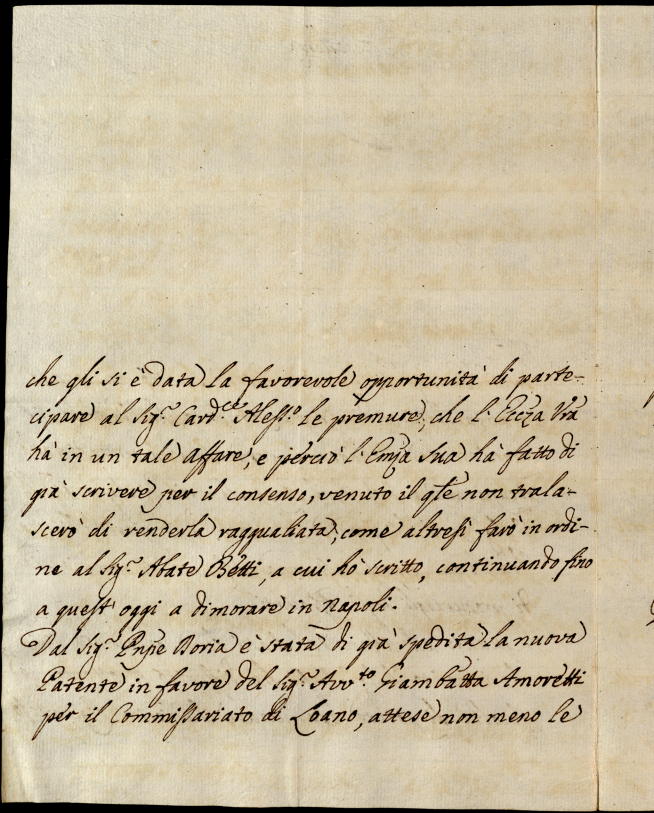 che gli si è data la favorevole opportunità di parte-
cipare al Sig.r Card.le Aless.o le premure, che l'Eccza Vrã
hà in un tale affare, e perciò l'Emza Sua hà fatto di
già scrivere per il consenso, venuto il qle non trala-
scerò di renderla ragguagliata, come altresì farò in ordi-
ne al Sig.r Abate Betti, a cui hò scritto, continuando fino
a quest'oggi a dimorare in Napoli.
Dal Sig.r Pnpe Doria è stata di già spedita la nuova
Patente in favore del Sig.r Avv.to Giambatta Amoretti
per il Commissariato di Loano, attese non meno le